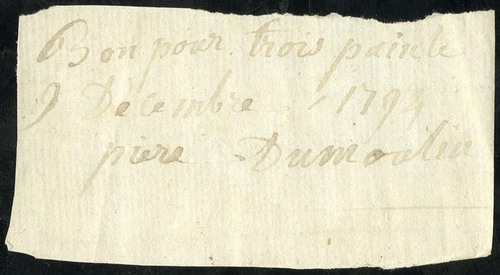 Bon pour trois painte
9 Décembre 1794
piere Dumoulin